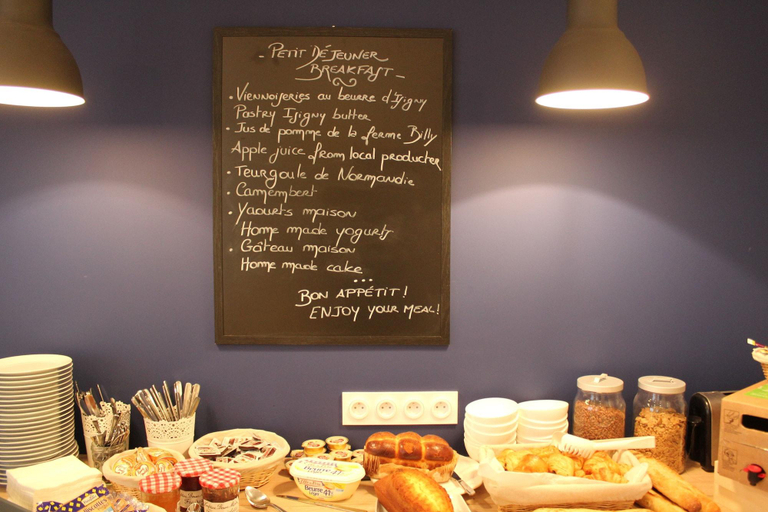 - Petit Déjeuner
Breakfast -
• Viennoiseries au beurre d'Isigny
Pastry Isigny butter
• Jus de pomme de la ferme Billy
Apple juice from local producter
• Teurgoule de Normandie
• Camembert
• Yaourts maison
Home made yogurts
• Gâteau maison
Home made cake
...
Bon appétit!
Enjoy your meal!
Beurre